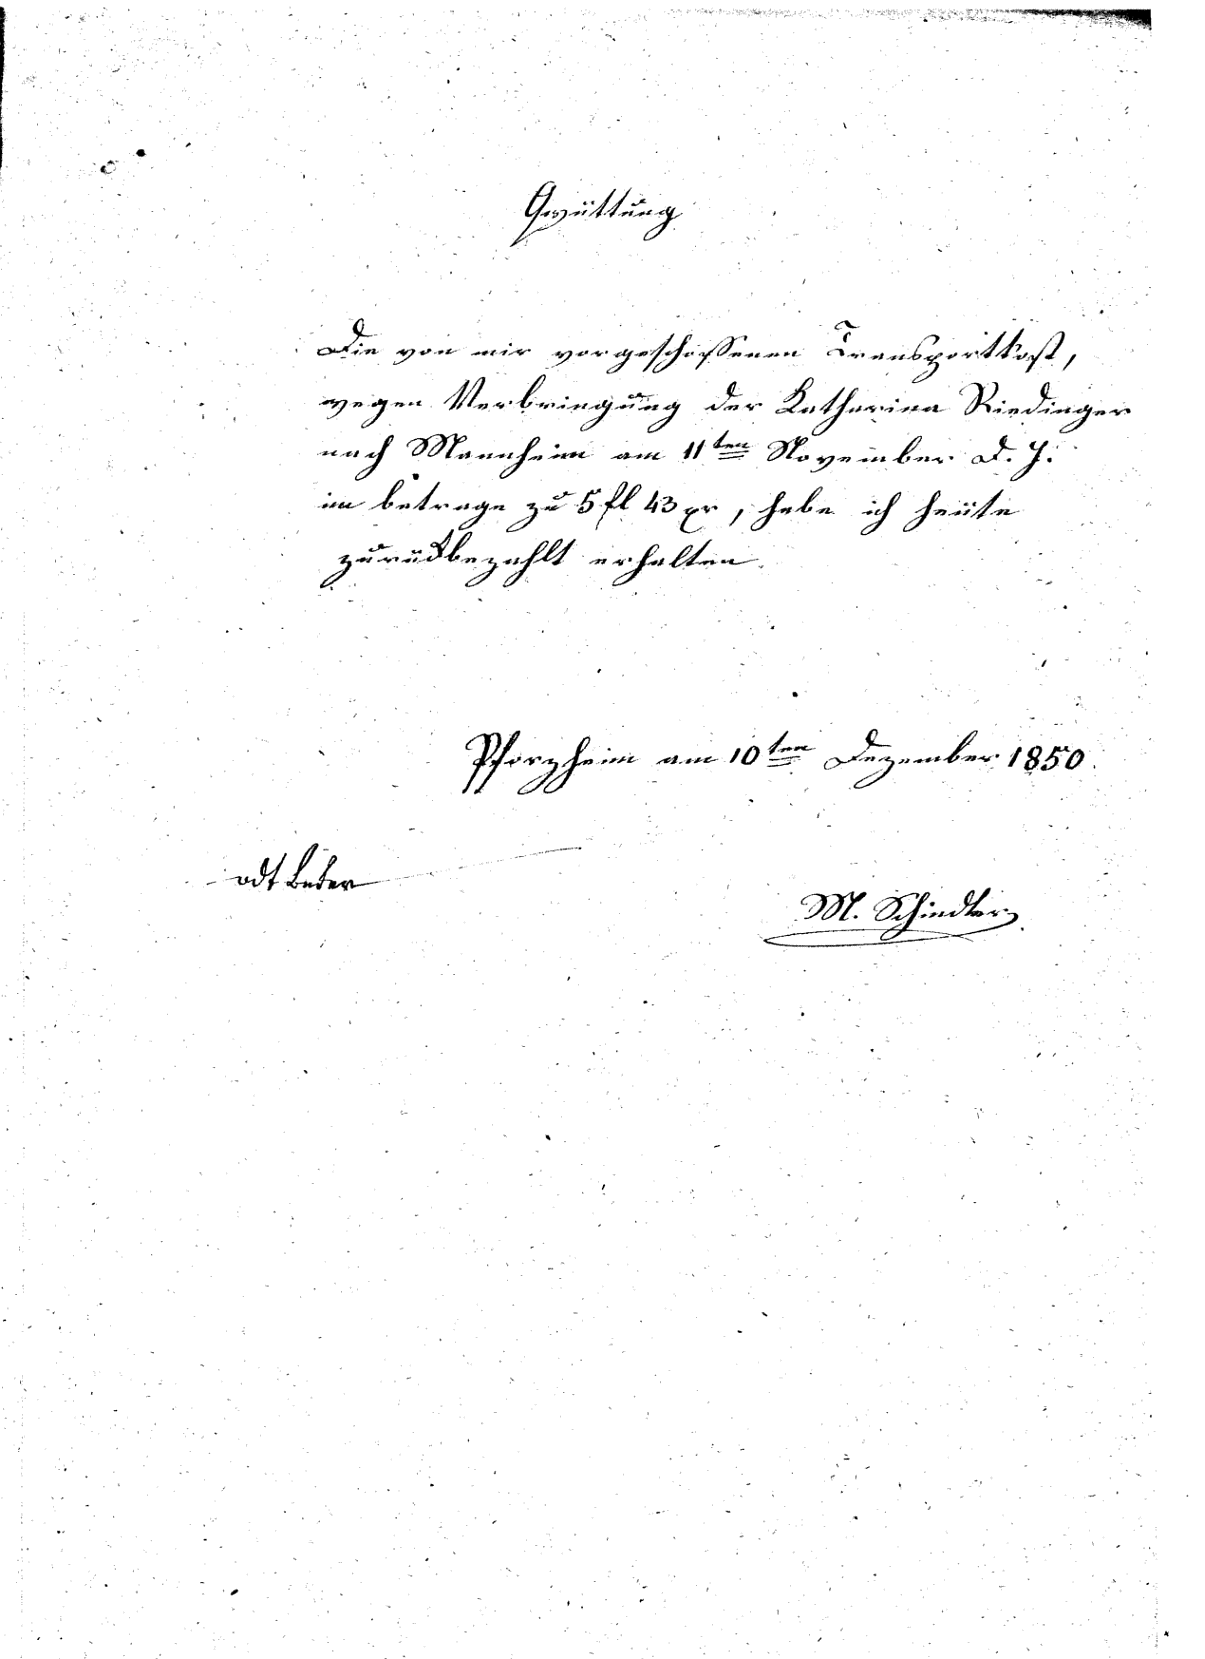 Quittung
Die von mir vorgeschossenen Transportkost,
wegen Verbringung der Katharina Riedinger
nach Mannheim am 11ten November d. J.
im betrage zu 5 fl 43 xr, habe ich heüte
zurückbezahlt erhalten.
Pforzheim am 10ten Dezember 1850.
vdt
M. Schindler